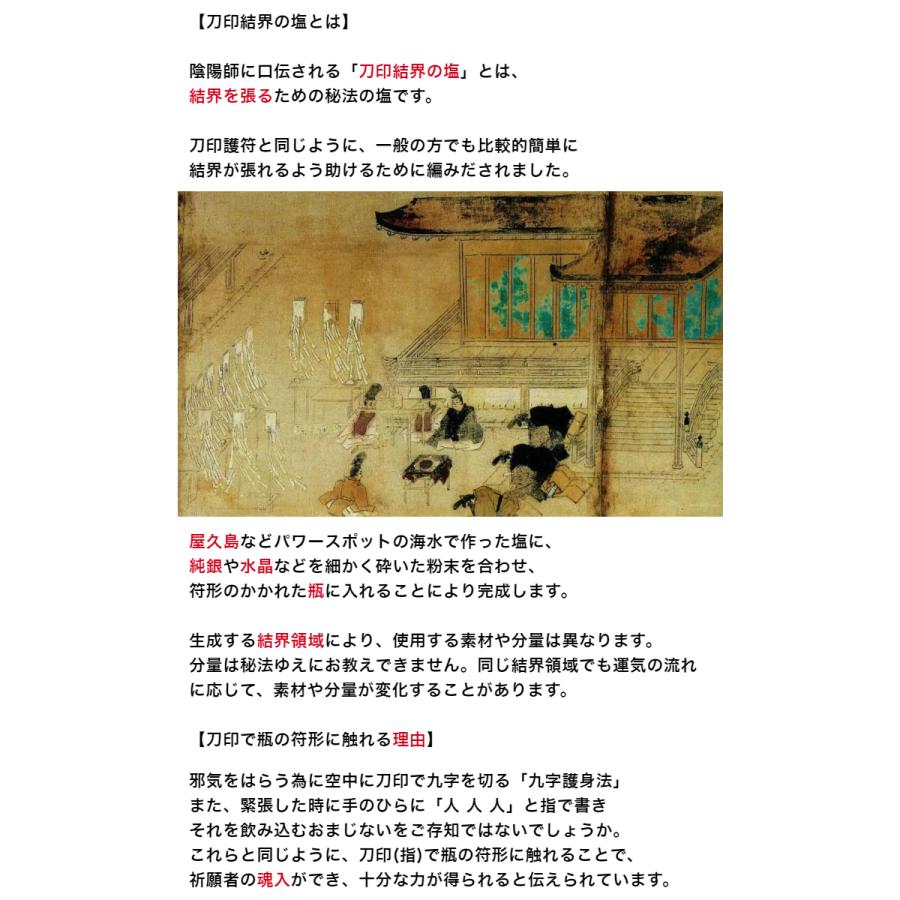 【刀印結界の塩とは】
陰陽師に口伝される「刀印結界の塩」とは、
結界を張るための秘法の塩です。
刀印護符と同じように、一般の方でも比較的簡単に
結界が張れるよう助けるために編みだされました。
屋久島などパワースポットの海水で作った塩に、
純銀や水晶などを細かく砕いた粉末を合わせ、
符形のかかれた瓶に入れることにより完成します。
生成する結界領域により、使用する素材や分量は異なります。
分量は秘法ゆえにお教えできません。同じ結界領域でも運気の流れ
に応じて、素材や分量が変化することがあります。
【刀印で瓶の符形に触れる理由】
邪気をはらう為に空中に刀印で九字を切る「九字護身法」
また、緊張した時に手のひらに「人 人 人」と指で書き
それを飲み込むおまじないをご存知ではないでしょうか。
これらと同じように、刀印(指)で瓶の符形に触れることで、
祈願者の魂入ができ、十分な力が得られると伝えられています。